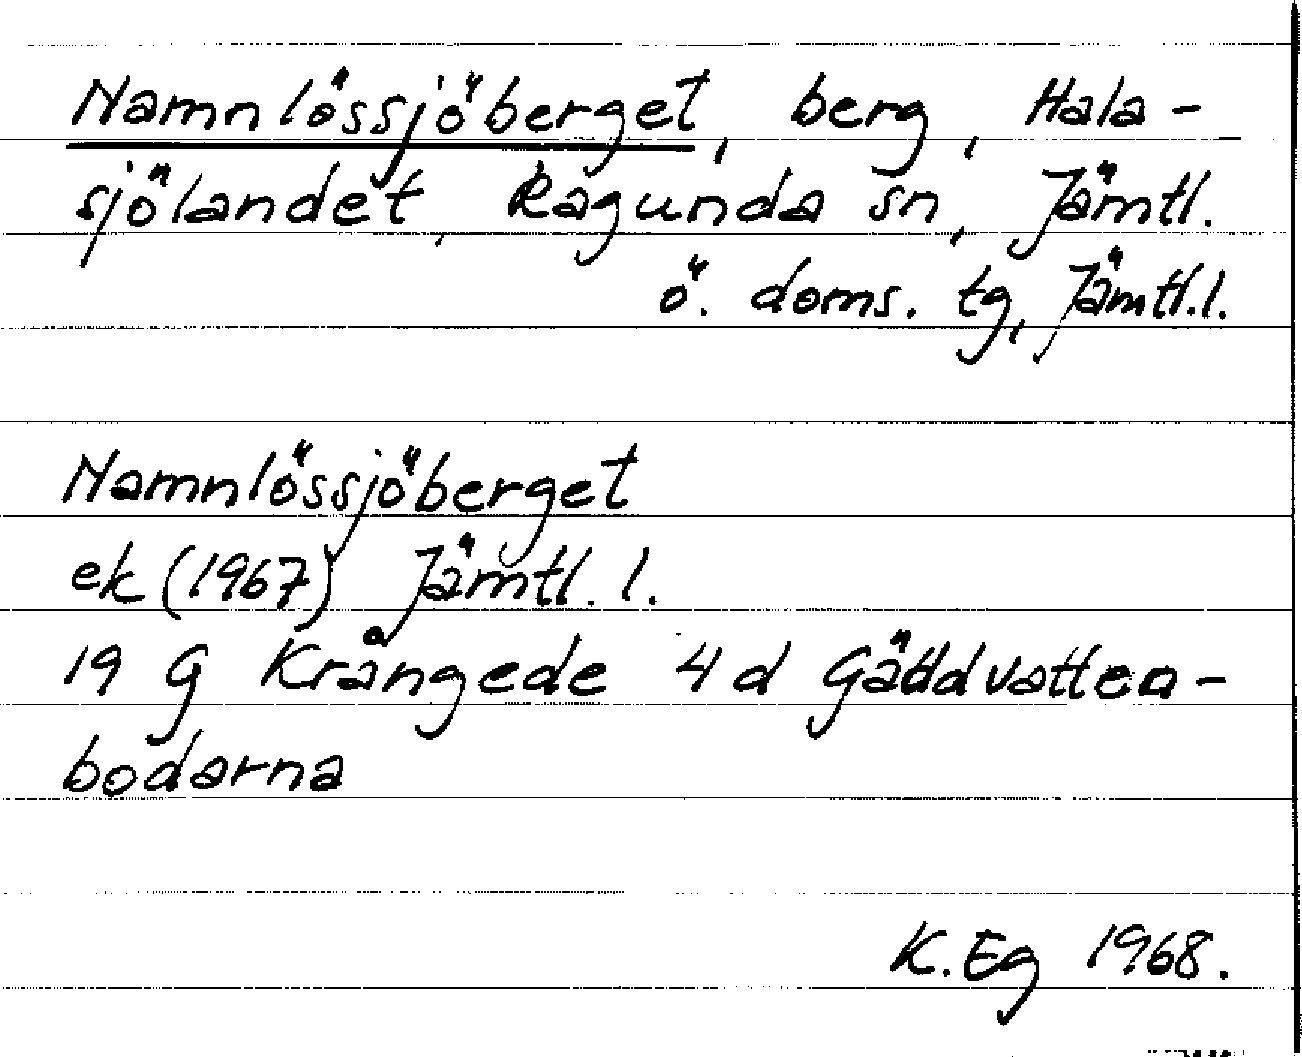 Namnlössjöberget, berg, Hala-
sjölandet, Ragunda sn, Jämtl.
ö. doms. tg, Jämtl.l.
Namnlössjöberget
ek (1967) Jämtl. l.
19 G Krångede 4 d Gäddvatten-
bodarna
K.Eg 1968.